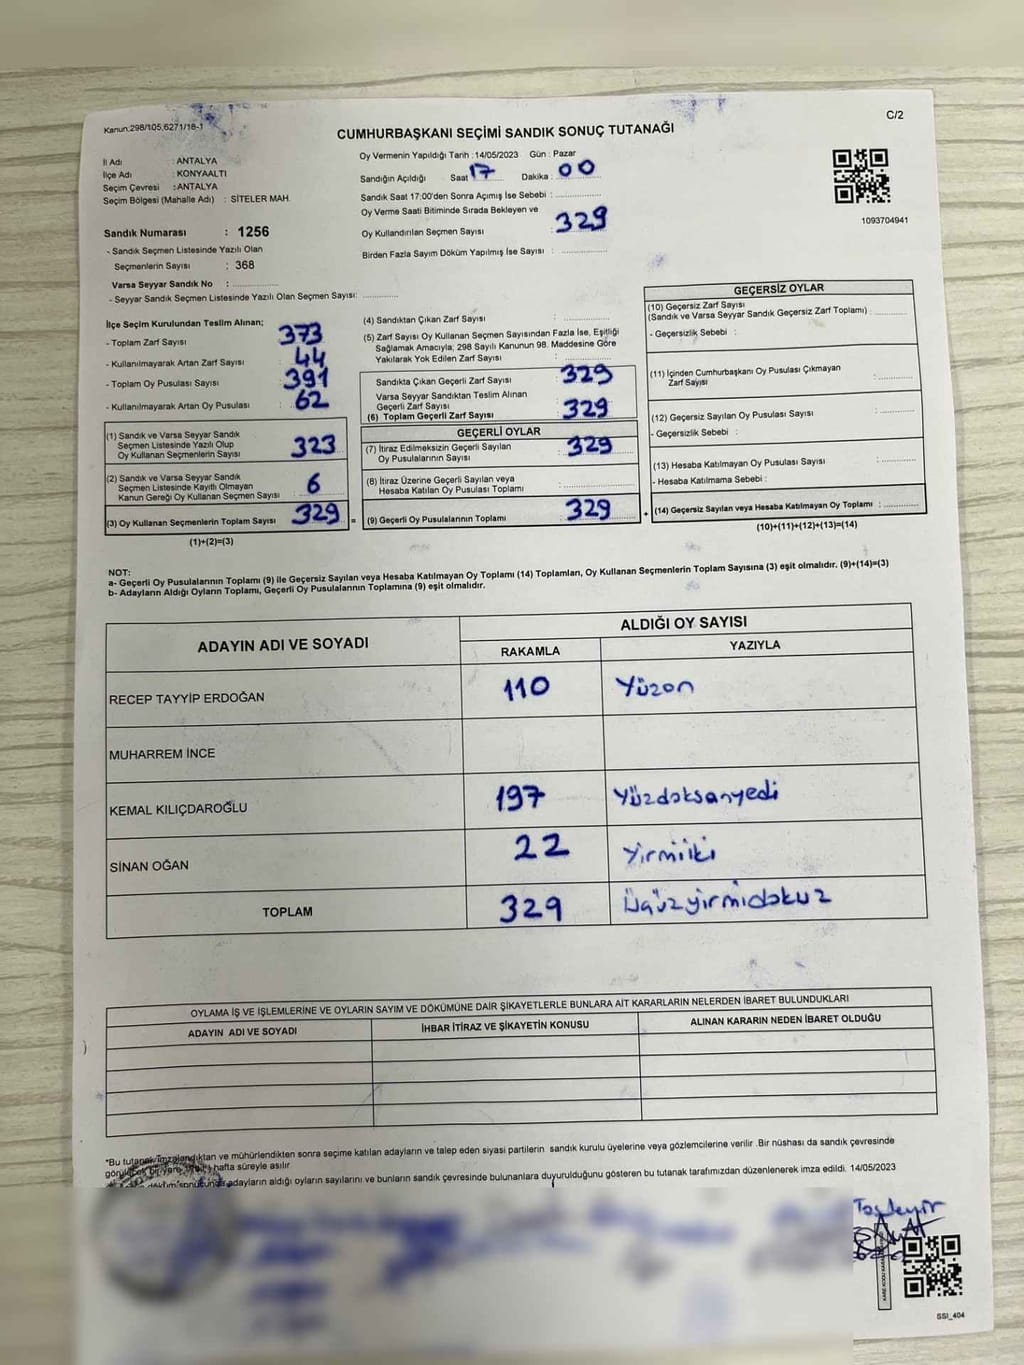 Kanun:298/105,6271/18-1
C/2
CUMHURBAŞKANI SEÇİMİ SANDIK SONUÇ TUTANAĞI
İl Adı : ANTALYA
İlçe Adı : KONYAALTI
Seçim Çevresi : ANTALYA
Seçim Bölgesi (Mahalle Adı) : SİTELER MAH.
Sandık Numarası : 1256
- Sandık Seçmen Listesinde Yazılı Olan
Seçmenlerin Sayısı : 368
Varsa Seyyar Sandık No :
- Seyyar Sandık Seçmen Listesinde Yazılı Olan Seçmen Sayısı:
Oy Vermenin Yapıldığı Tarih :14/05/2023 Gün : Pazar
Sandığın Açıldığı Saat : 17 Dakika : 00
Sandık Saat 17:00'den Sonra Açımış İse Sebebi :
Oy Verme Saati Bitiminde Sırada Bekleyen ve
Oy Kullandırılan Seçmen Sayısı : 329
Birden Fazla Sayım Döküm Yapılmış İse Sayısı :
1093704941
İlçe Seçim Kurulundan Teslim Alınan;
- Toplam Zarf Sayısı : 373
- Kullanılmayarak Artan Zarf Sayısı : 44
- Toplam Oy Pusulası Sayısı : 391
- Kullanılmayarak Artan Oy Pusulası : 62
(1) Sandık ve Varsa Seyyar Sandık
Seçmen Listesinde Yazılı Olup
Oy Kullanan Seçmenlerin Sayısı 323
(2) Sandık ve Varsa Seyyar Sandık
Seçmen Listesinde Kayıtlı Olmayan
Kanun Gereği Oy Kullanan Seçmen Sayısı : 6
(3) Oy Kullanan Seçmenlerin Toplam Sayısı : 329 =
(1)+(2)=(3)
(4) Sandıktan Çıkan Zarf Sayısı :
(5) Zarf Sayısı Oy Kullanan Seçmen Sayısından Fazla İse, Eşitliği
Sağlamak Amacıyla; 298 Sayılı Kanunun 98. Maddesine Göre
Yakılarak Yok Edilen Zarf Sayısı :
Sandıkta Çıkan Geçerli Zarf Sayısı : 329
Varsa Seyyar Sandıktan Teslim Alınan
Geçerli Zarf Sayısı
(6) Toplam Geçerli Zarf Sayısı : 329
GEÇERLİ OYLAR
(7) İtiraz Edilmeksizin Geçerli Sayılan
Oy Pusulalarının Sayısı : 329
(8) İtiraz Üzerine Geçerli Sayılan veya
Hesaba Katılan Oy Pusulası Toplamı :
(9) Geçerli Oy Pusulalarının Toplamı : 329 +
GEÇERSİZ OYLAR
(10) Geçersiz Zarf Sayısı
(Sandık ve Varsa Seyyar Sandık Geçersiz Zarf Toplamı) :
- Geçersizlik Sebebi :
(11) İçinden Cumhurbaşkanı Oy Pusulası Çıkmayan
Zarf Sayısı :
(12) Geçersiz Sayılan Oy Pusulası Sayısı :
- Geçersizlik Sebebi :
(13) Hesaba Katılmayan Oy Pusulası Sayısı :
- Hesaba Katılmama Sebebi :
(14) Geçersiz Sayılan veya Hesaba Katılmayan Oy Toplamı :
(10)+(11)+(12)+(13)=(14)
NOT:
a- Geçerli Oy Pusulalarının Toplamı (9) ile Geçersiz Sayılan veya Hesaba Katılmayan Oy Toplamı (14) Toplamları, Oy Kullanan Seçmenlerin Toplam Sayısına (3) eşit olmalıdır. (9)+(14)=(3)
b- Adayların Aldığı Oyların Toplamı, Geçerli Oy Pusulalarının Toplamına (9) eşit olmalıdır.
ADAYIN ADI VE SOYADI
ALDIĞI OY SAYISI
RAKAMLA YAZIYLA
RECEP TAYYİP ERDOĞAN 110 Yüzon
MUHARREM İNCE
KEMAL KILIÇDAROĞLU 197 Yüzdoksanyedi
SİNAN OĞAN 22 Yirmiiki
TOPLAM 329 Üçyüzyirmidokuz
OYLAMA İŞ VE İŞLEMLERİNE VE OYLARIN SAYIM VE DÖKÜMÜNE DAİR ŞİKAYETLERLE BUNLARA AİT KARARLARIN NELERDEN İBARET BULUNDUKLARI
ADAYIN ADI VE SOYADI İHBAR İTİRAZ VE ŞİKAYETİN KONUSU ALINAN KARARIN NEDEN İBARET OLDUĞU
*Bu tutanak imzalandıktan ve mühürlendikten sonra seçime katılan adayların ve talep eden siyasi partilerin sandık kurulu üyelerine veya gözlemcilerine verilir .Bir nüshası da sandık çevresinde
hafta süreyle asılır.
adayların aldığı oyların sayılarını ve bunların sandık çevresinde bulunanlara duyurulduğunu gösteren bu tutanak tarafımızdan düzenlenerek imza edildi. 14/05/2023
SSI_404